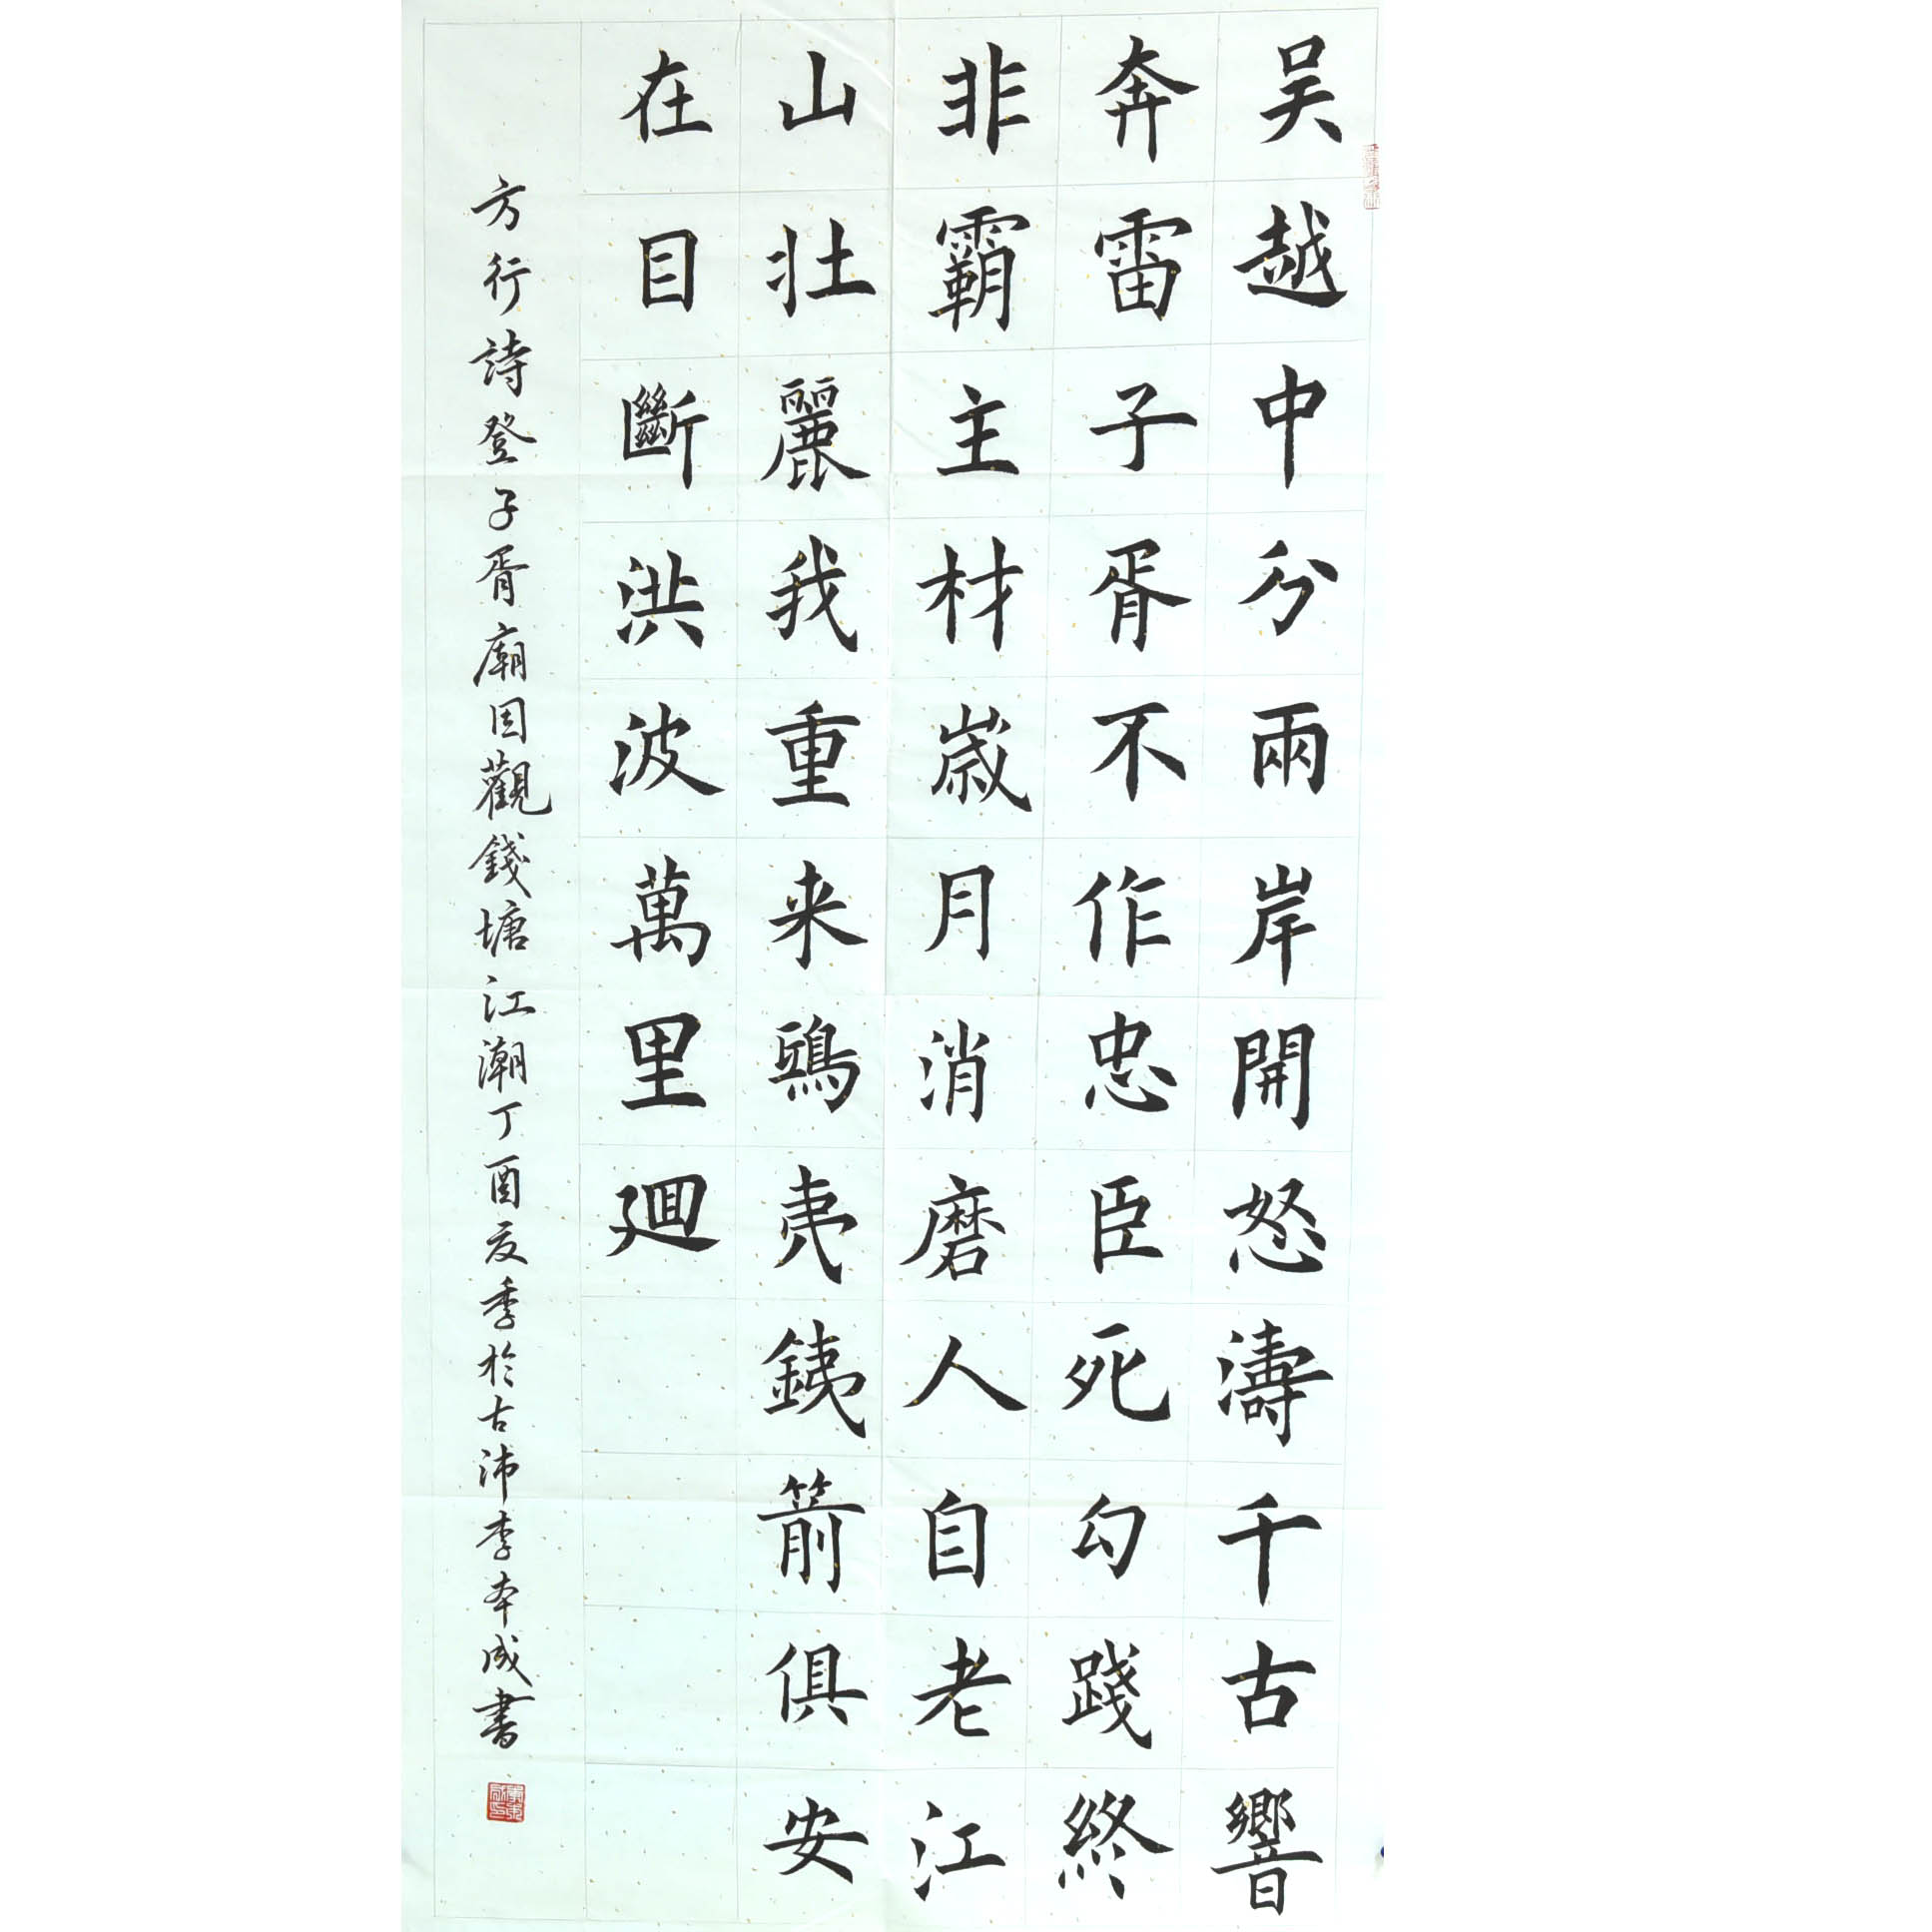 吴越中分兩岸開怒濤千古響
奔雷子胥不作忠臣死勾踐終
非霸主材歲月消磨人自老江
山壯麗我重来鴟夷銕箭俱安
在目斷洪波萬里迴
方行詩登子胥廟因觀錢塘江潮丁酉夏季於古沛李本成書